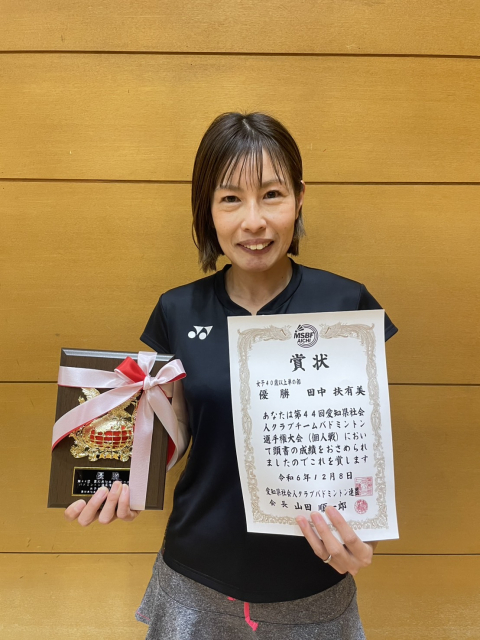 MSBF
AICHI
賞状
女子40歳以上単の部
優勝 田中 扶有美
あなたは第44回愛知県社会
人クラブチームバドミントン
選手権大会(個人戦)におい
て頭書の成績をおさめられ
ましたのでこれを賞します
令和6年12月8日
愛知県社会人クラブバドミントン連盟
会長 山田
優勝